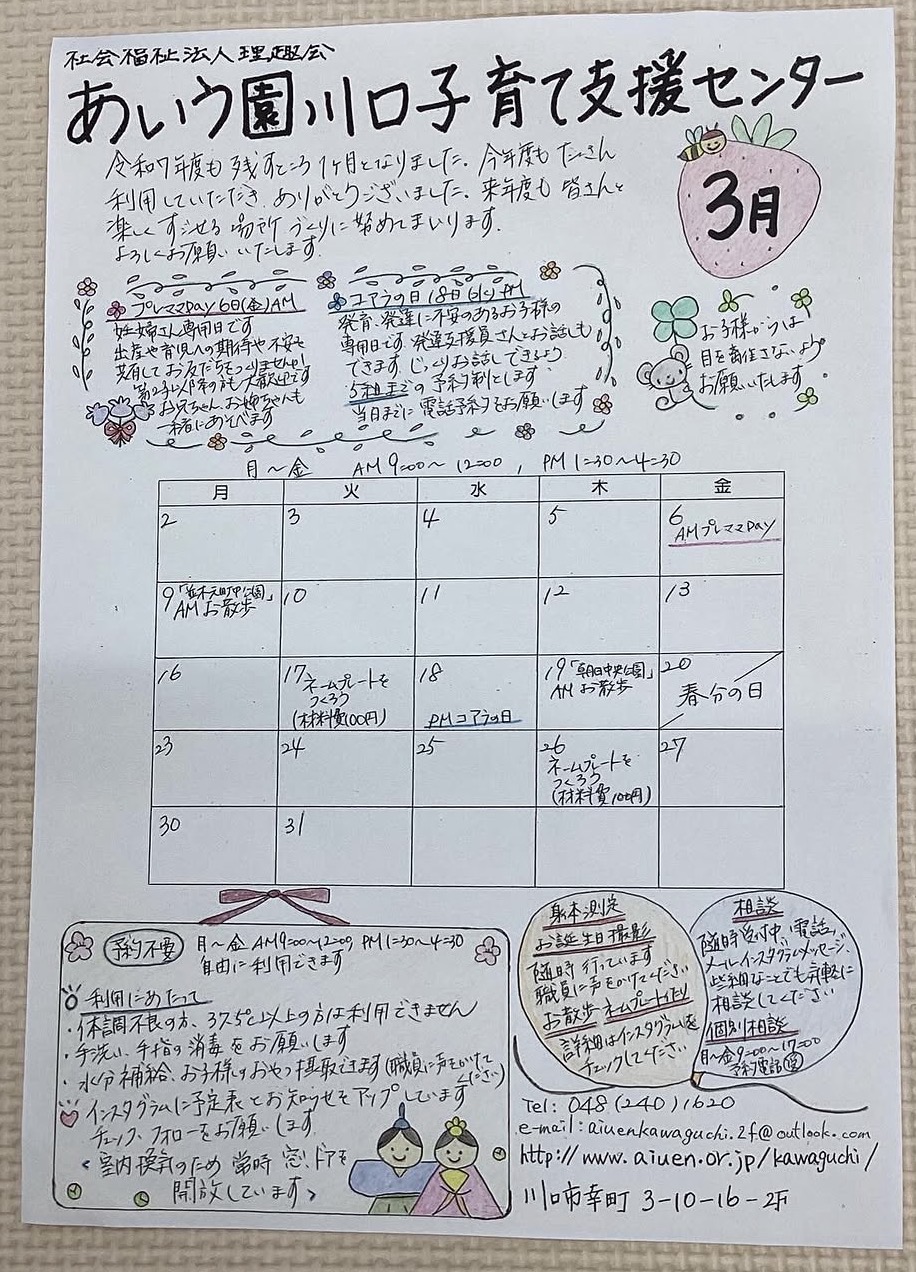 社会福祉法人理趣会
あいう園川口子育て支援センター
3月
令和7年度も残すところ1ヶ月となりました。今年度もたくさん
利用していただき、ありがとうございました。来年度も皆さんと
楽しくすごせる場所づくりに努めてまいります。
よろしくお願いいたします。
プレママDay 6日(金)AM
妊婦さん専用日です
出産や育児への期待や不安を
共有してお友だちをつくりませんか!
第2子以降の方も大歓迎です
お兄ちゃん、お姉ちゃんも
一緒にあそべます
コアラの日 18日(水)PM
発育、発達に不安のあるお子様の
専用日です。発達支援員さんとお話しも
できます。じっくりお話しできるよう
5組までの予約制とします
当日までに電話予約をお願いします
お子様からは
目を離さないよう
お願いいたします
月～金 AM9:00～12:00, PM1:30～4:30
月 火 水 木 金
2 3 4 5 6
AMプレママDay
9「並木元町中公園」
AMお散歩
10 11 12 13
16
17 ネームプレートを
つくろう
(材料費100円)
18
PMコアラの日
19「朝日中央公園」
AMお散歩
20
春分の日
23 24 25
26
ネームプレートを
つくろう
(材料費100円)
27
30 31
予約不要 月～金 AM9:00～12:00, PM1:30～4:30
自由に利用できます
利用にあたって
・体調不良の方、37.5℃以上の方は利用できません
・手洗い、手指の消毒をお願いします
・水分補給、お子様のおやつ摂取できます(職員に声をかけて
ください)
インスタグラムに予定表とお知らせをアップしています
チェック、フォローをお願いします
<室内換気のため常時窓、ドアを
開放しています>
身体測定
お誕生日撮影
随時行っています
職員に声をかけてください
お散歩・ネームプレート作り
詳細はインスタグラムを
チェックしてください
相談
随時受付中、電話、
メール、インスタグラムメッセージ、
些細なことでも気軽に
相談してください
個別相談
月～金 9:00～17:00
予約電話
Tel: 048(240)1620
e-mail: aiuenkawaguchi.2f@outlook.com
http://www.aiuen.or.jp/kawaguchi/
川口市幸町 3-10-16-2F